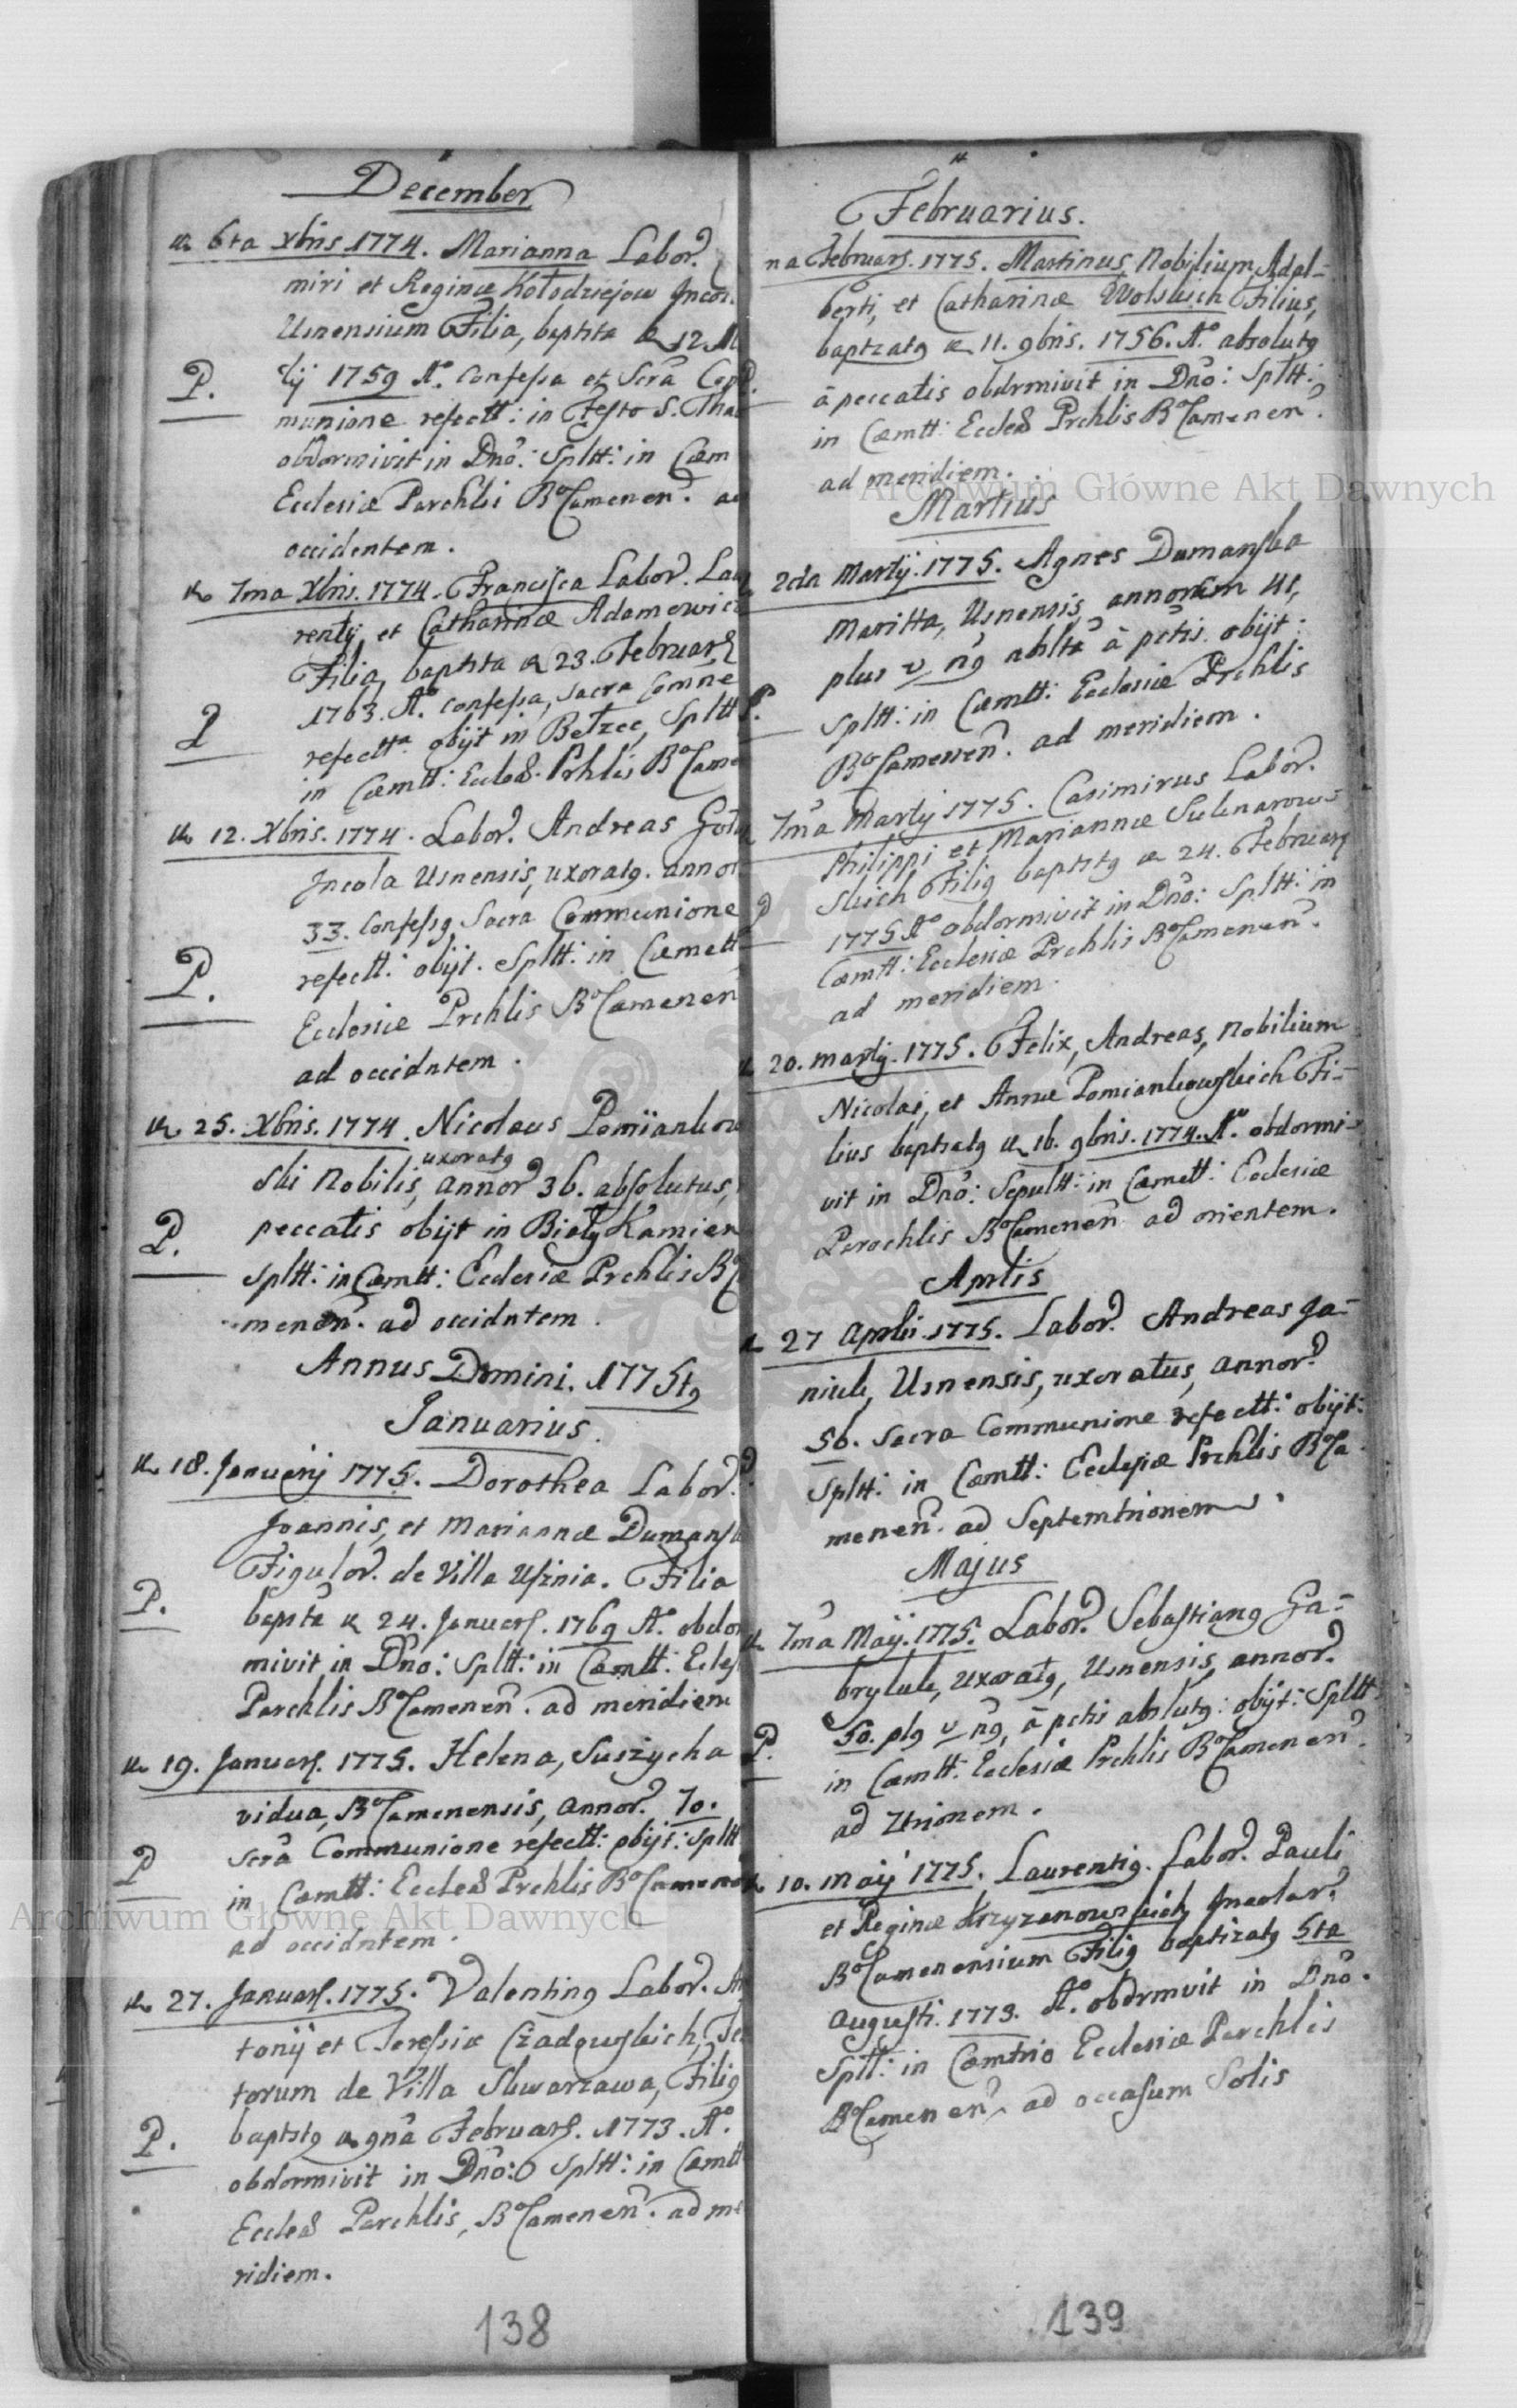 December
6ta Xbris 1774. Marianna Labor.
miri et Reginæ Kołodziejow Incol.
Usnensium Filia, baptsta 12 M
tij 1759 A.o Confessa et Scrã Com
P.
munione refectt: in Festo S. Tho
obdormivit in Dno: Spltt: in Cœm
Ecclesiæ Parchlis BoCamenen. ad
occidentem.
7ma Xbris. 1774. Francisca Labor. Lau
rentij, et Catharinæ Adamowicz
Filia, baptsta 23. Februarij
1763. A.o Confessa, sacra Comñe
P
refectta obijt in Bełzec, Spltt
in Cœmtt: Eccleæ Prhlis BoCame
12. Xbris. 1774. Labor. Andreas
Incola Usnensis, uxoratg. annor
33. Confessg Sacra Communione
P.
refectt: obijt. Spltt: in Cœmett
Ecclesiæ Prchlis BoCamenen
ad occidntem.
25. Xbris. 1774. Nicolaus Pomiankow
uxoratg
ski Nobilis, annor 36. absolutus,
P.
peccatis obijt in Biały Kamien
spltt: in Cœmtt: Ecclesiæ Prchlis Bo
menen. ad occidntem.
Annus Domini. 1775tg
Januarius.
18. Januarij 1775. Dorothea Labor.
Joannis, et Mariannæ Dumansk
Figulor. de Villa Usznia. Filia
P.
bapsta 24. Januarij. 1769 A.o obdor
mivit in Dno: Spltt: in Cœmtt: Ecles
Parchlis BoCamenen. ad meridiem
19. Januarij. 1775. Helena, Suszycha
vidua, BoCamenensis, annor. 70.
scrã Communione refectt: obijt: Spltt
P
in Cœmtt: Eccleæ Prchlis BoCamenen
ad occidntem.
27. Januarij. 1775. Valenting Labor. An
tonij et Theresiæ Czadowskich,
torum de Villa Skwarzawa, Filig
P.
baptstg 9na Februarij. 1773. A.o
obdormivit in Dno: Spltt: in Cœmtt
Eccleæ Parchlis, BoCamenen. ad me
ridiem.
138
Februarius.
na Februarij. 1775. Martinus Nobilium Adal-
berti, et Catharinæ Wolskich Filius,
baptzatg 11. 9bris. 1756. A.o absolutg
à peccatis obdrmivit in Dno: Spltt:
in Cœmtt: Eccleæ Prchlis BoCamenen.
ad meridiem.
Martius
2da Martij. 1775. Agnes Dumanska
Maritta, Usnensis, annorum 41,
plus v ng abslta à pctis. obijt:
P.
Spltt: in Cœmtt: Ecclesiæ Prchlis
BoCamenen. ad meridiem.
7ma Martij 1775. Casimirus Labor.
Philippi et Mariannæ Sulenarow-
skich Filig baptstg 24. Februarij
P
1775 A.o obdormivit in Dno: Spltt: in
Cœmtt: Ecclesiæ Prchlis BoCamenen.
ad meridiem.
20. Martij. 1775. Felix, Andreas, Nobilium
Nicolai, et Annæ Pomiankowskich Fi-
lius baptzatg 16. 9bris. 1774. A.o obdormi-
vit in Dno: Sepultt: in Cœmett: Ecclesiæ
Parochlis BoCamenen ad orientem.
Aprlis
27 Aprlis. 1775. Labor. Andreas Ja-
niuk, Usnensis, uxoratus, annor.
56. Sacra Communione refectt: obijt:
P.
Spltt: in Cœmtt: Ecclesiæ Prchlis BoCa
menen. ad Septemtrionem.
Majus
7ma Maij. 1775. Labor. Sebastiang Ga-
bryluk, uxoratg, Usnensis, annor.
50. plg v ng, à pctis abslutg: obijt: Spltt
P.
in Cœmtt: Ecclesiæ Prchlis BoCamenen.
ad 7trionem.
10. Maij 1775. Laurentig. Labor. Pauli
et Reginæ Krzyzanowskich Incolar.
BoCamenensium Filig baptizatg 5ta
Augusti. 1773. A.o obdrmivit in Dno.
Spltt: in Cœmtrio Ecclesiæ Parchlis
BoCamenen. ad occasum Solis
139
Archiwum Główne Akt Dawnych
Archiwum Główne Akt Dawnych